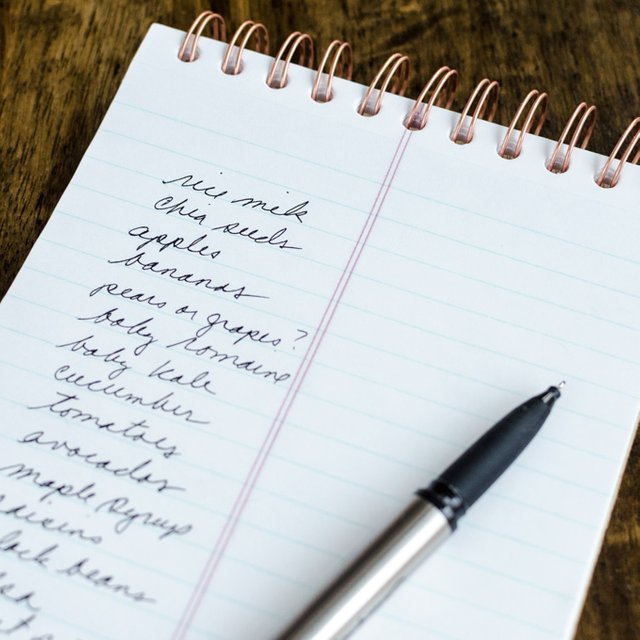 rice milk
chia seeds
apples
bananas
pears or grapes?
baby romaine
baby kale
cucumber
tomatoes
avocados
maple syrup
raisins
black beans